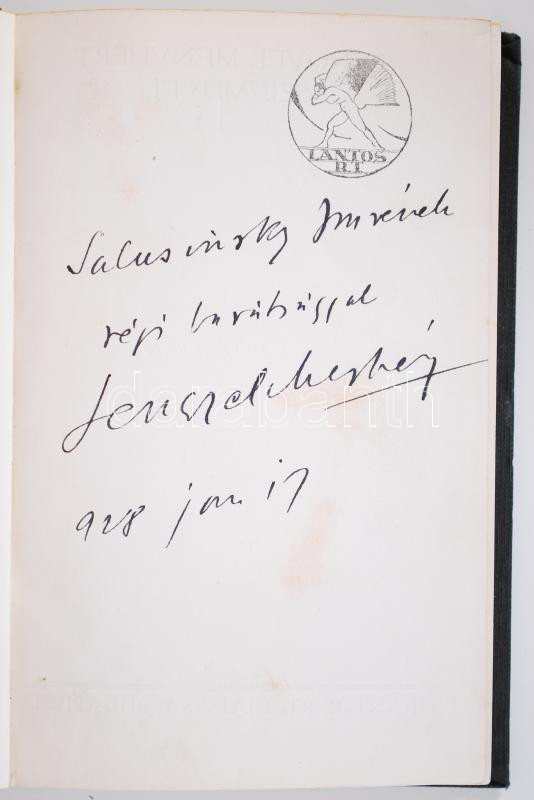 LANTOS
R.T.
Salusinszky Imrének
régi barátsággal
Lengyel Menyhért
928 jan 17
darabanth